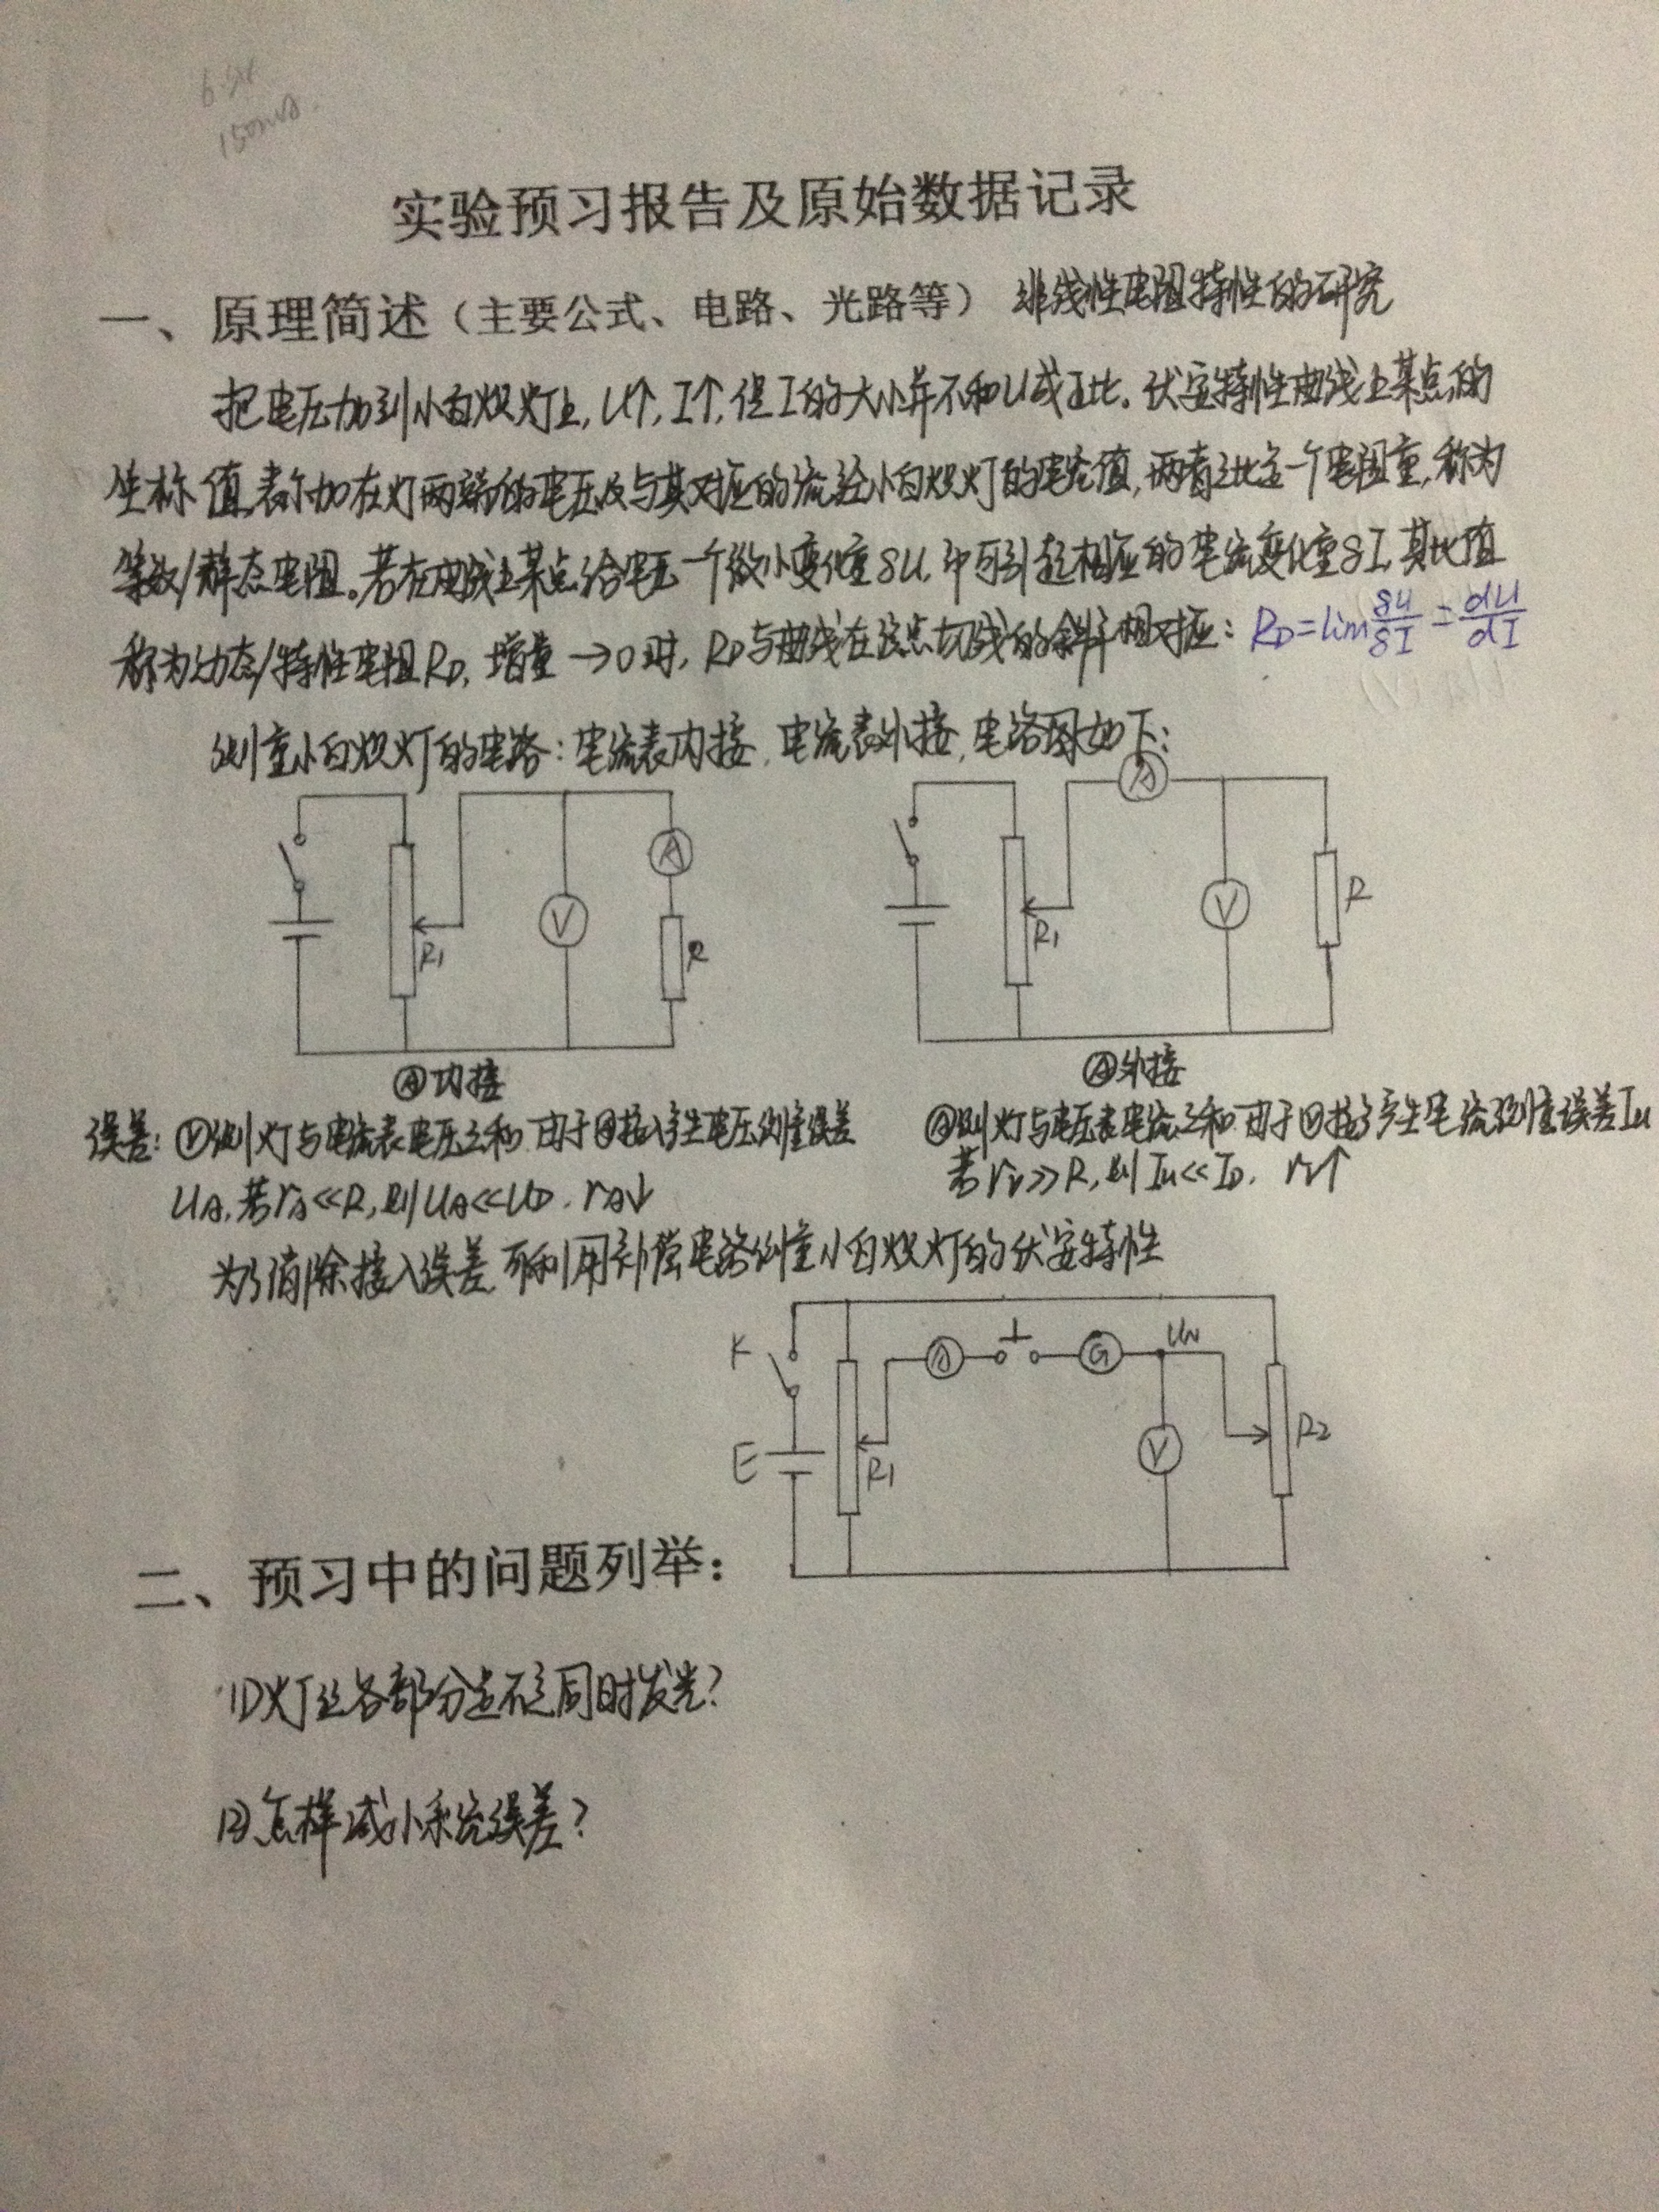 6.3V
150mA.
实验预习报告及原始数据记录
一、原理简述（主要公式、电路、光路等） 非线性电阻特性的研究
把电压加到小白炽灯上,U↑,I↑,但I的大小并不和U成正比。伏安特性曲线上某点的
坐标值,表示加在灯两端的电压及与其对应的流经小白炽灯的电流值,两者之比是一个电阻量,称为
等效/静态电阻。若在曲线上某点给电压一个微小变化量δU,即可引起相应的电流变化量δI,其比值
称为动态/特性电阻RD, 增量→0时, RD与曲线在该点切线的斜率相对应: RD=lim δU/δI = dU/dI
测量小白炽灯的电路:电流表内接,电流表外接,电路图如下:
A
A
V
R1
R
V
R1
R
Ⓐ内接
Ⓐ外接
误差: Ⓥ测灯与电流表电压之和,由于Ⓐ接入产生电压测量误差
UA,若rA<<R,则UA<<UD. rA↓
Ⓐ测灯与电压表电流之和,由于Ⓥ接入产生电流测量误差Iu
若rv>>R,则Iu<<ID, rv↑
为了消除接入误差,可利用补偿电路测量小白炽灯的伏安特性
K
E
R1
A
G
V
R2
二、预习中的问题列举：
(1)灯丝各部分是不是同时发光?
(2)怎样减小系统误差?